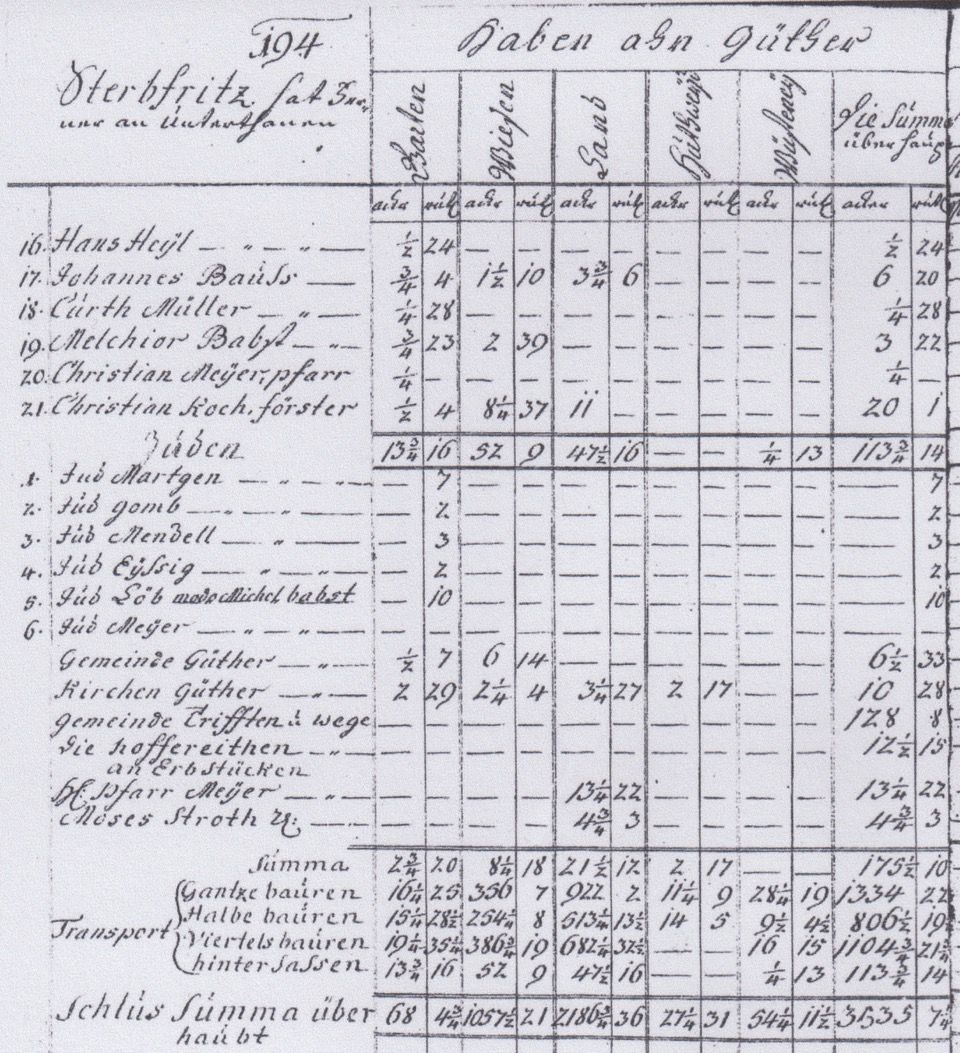 194
Haben ahn Güther
Sterbfritz hat Fer¬
ner an Unterthanen
Garten Wiesen Land Hüthweyd Wüsteney Die Summa
über haupt
acker ruth acker ruth acker ruth acker ruth acker ruth acker ruth
16. Hans Heyl — „ — „ — ½ 24 — — — — — — — — ½ 24
17. Johannes Bauss — ¾ 4 1½ 10 3¾ 6 — — — — 6 20
18. Curth Müller — „ — ¼ 28 — — — — — — — — ¼ 28
19. Melchior Babst — „ — ¾ 23 2 39 — — — — — — 3 22
20. Christian Meyer, pfarr ¼ — — — — — — — — — ¼ —
21. Christian Koch, förster ½ 4 8¼ 37 11 — — — — — 20 1
Juden 13¾ 16 52 9 47½ 16 — — ¼ 13 113¾ 14
1. Jud Martgen — „ — „ — — 7 — — — — — — — — — 7
2. Jud gomb — „ — „ — — 2 — — — — — — — — — 2
3. Jud Mendell — „ — — 3 — — — — — — — — — 3
4. Jud Eyssig — „ — „ — — 2 — — — — — — — — — 2
5. Jud Löb modo Michel babst — 10 — — — — — — — — — 10
6. Jud Meyer — „ — „ — — — — — — — — — — — — —
Gemeinde Güther — „ — ½ 7 6 14 — — — — — — 6½ 33
Kirchen Güther — „ — 2 29 2¼ 4 3¼ 27 2 17 — — 10 28
gemeinde Trifften u wege — — — — — — — — — — 128 8
Die hoffereithen — „ — — — — — — — — — — — 12½ 15
an Erbstücken
H. Pfarr Meyer — „ — — — — — 13¼ 22 — — — — 13¼ 22
Moses Stroth — — — — — 4¾ 3 — — — — 4¾ 3
Summa 2¾ 20 8¼ 18 21½ 12 2 17 — — 175½ 10
Gantze bauren 16¼ 25 356 7 922 2 11¼ 9 28¼ 19 1334 22
Transport Halbe bauren 15¼ 28½ 254¼ 8 513¼ 13½ 14 5 9½ 4½ 806½ 19
Viertels bauren 19¼ 35¼ 386¾ 19 682¼ 32½ — — 16 15 1104¾ 21¾
hinter sassen 13¾ 16 52 9 47½ 16 — — ¼ 13 113¾ 14
Schlus Summa über 68 4¾ 1057½ 21 2186¾ 36 27¼ 31 54¼ 11½ 3535 7¼
haubt